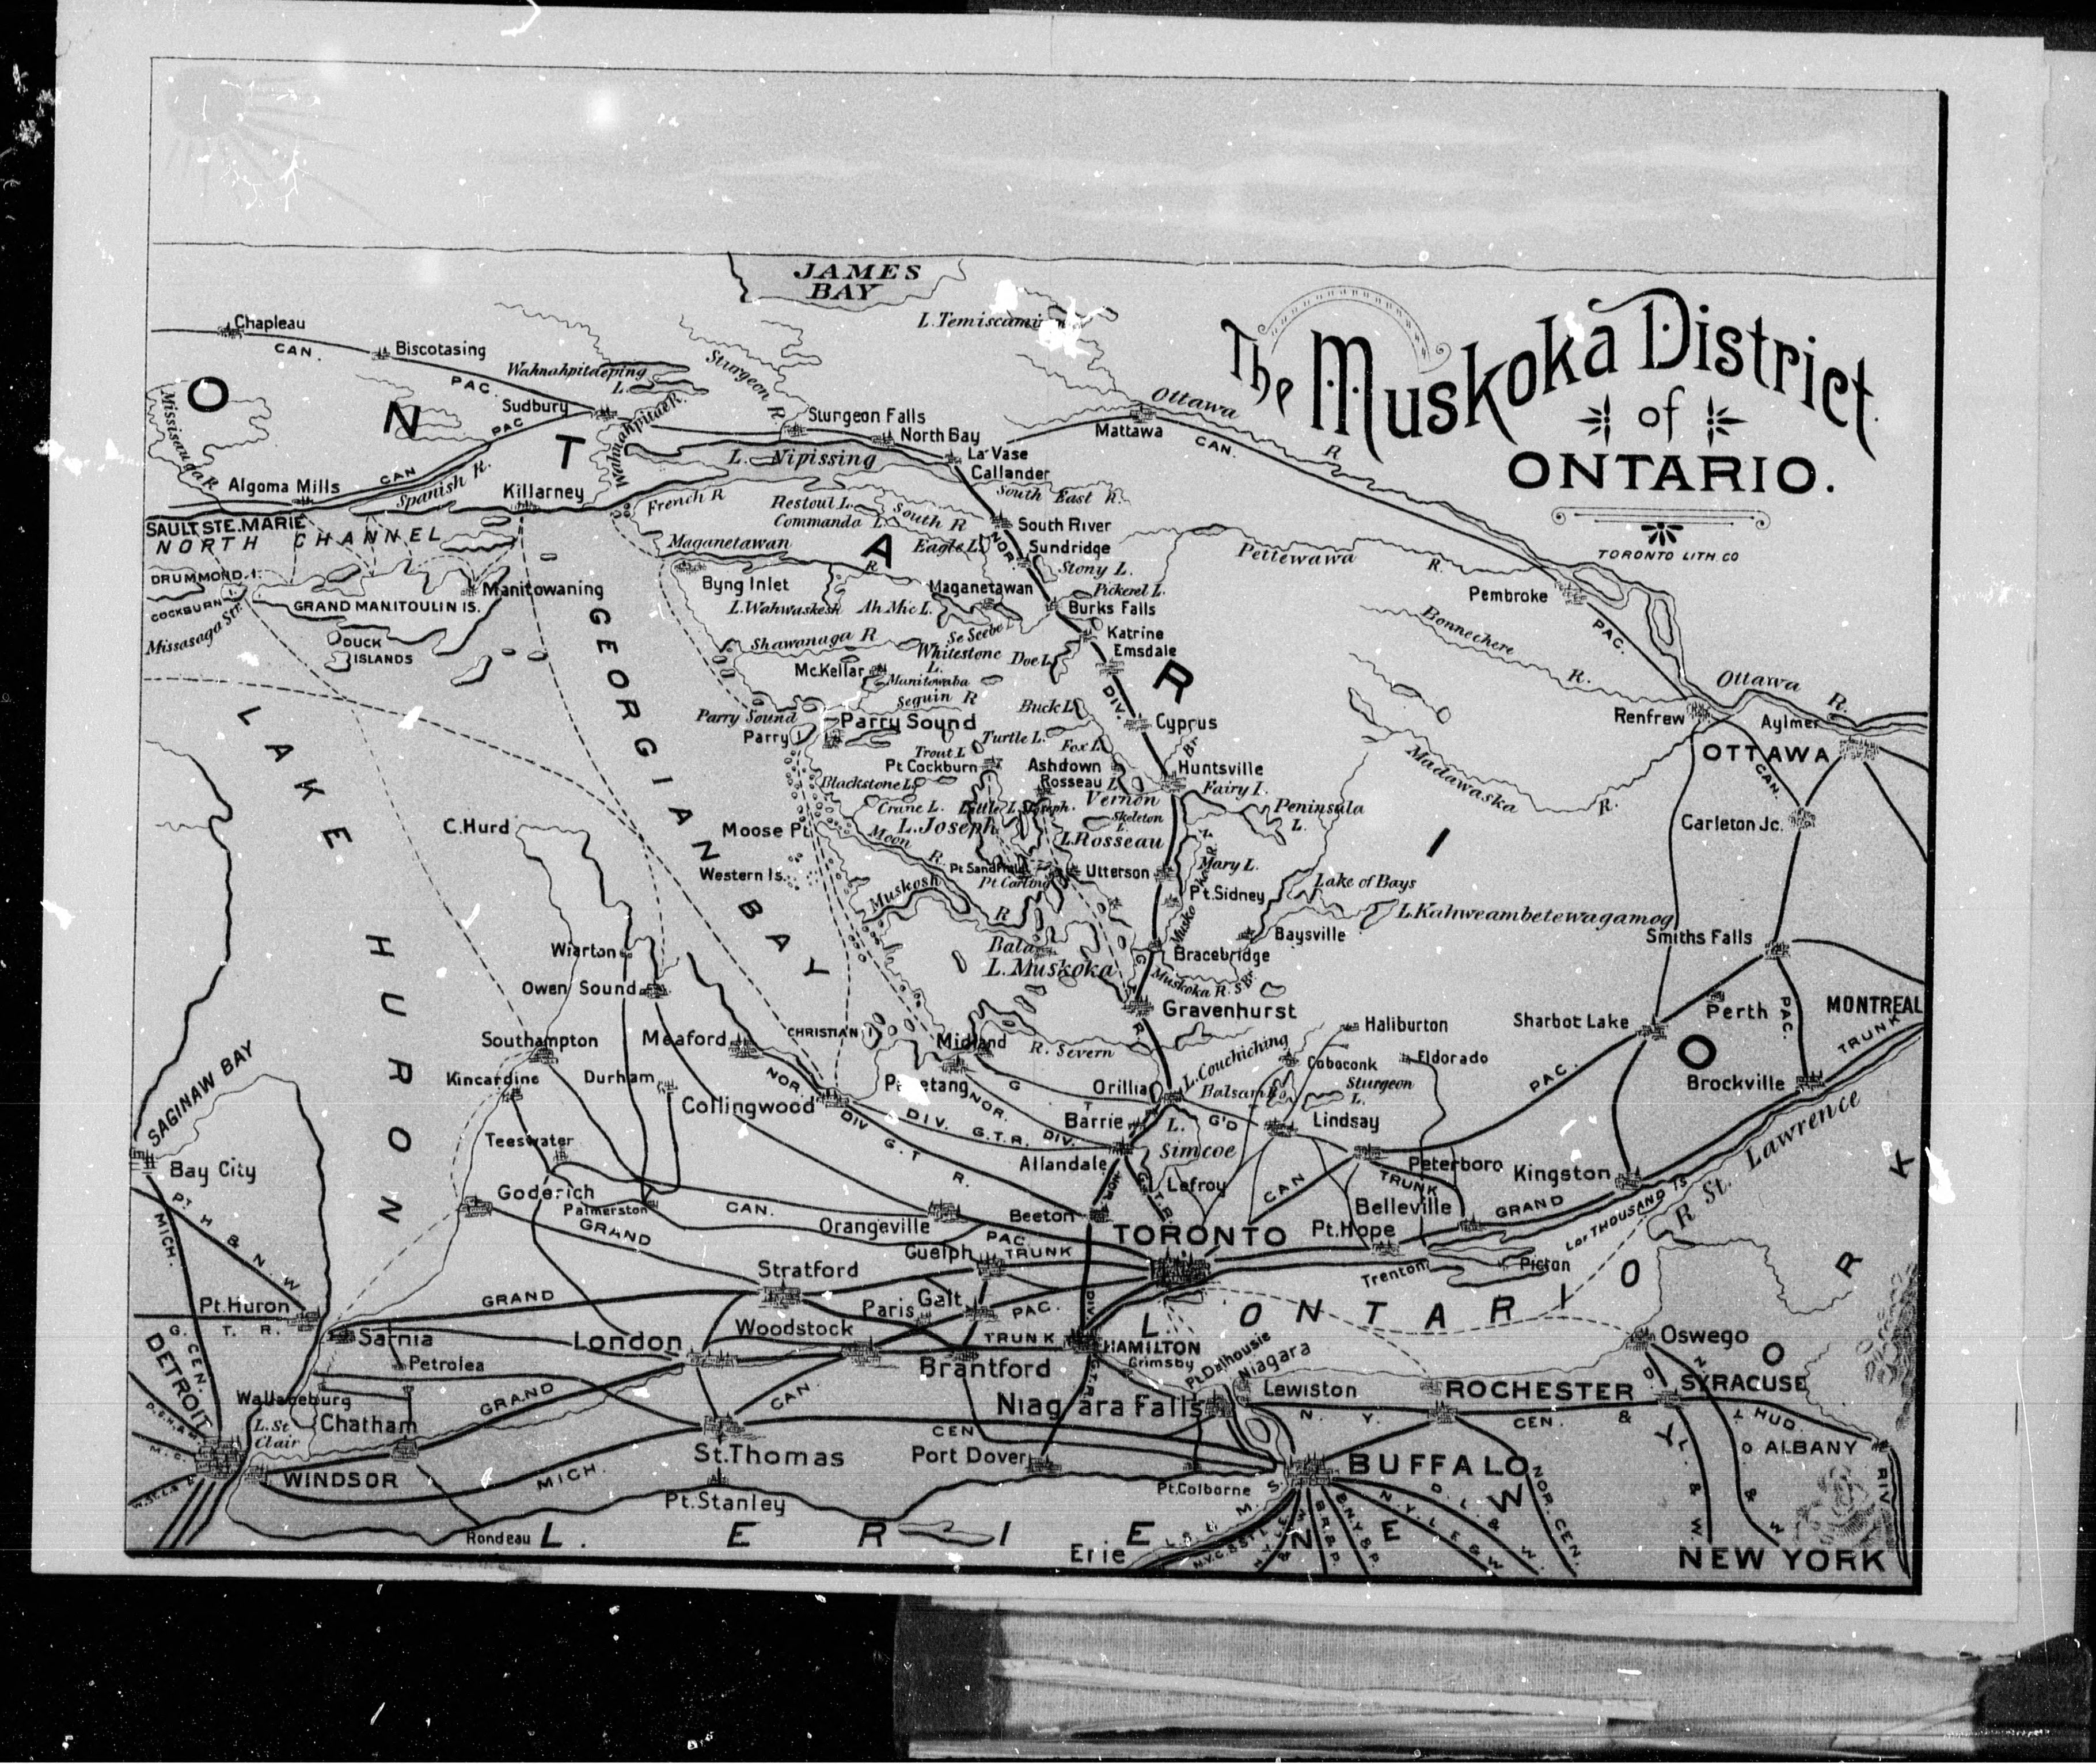 The Muskoka District
of
ONTARIO.
TORONTO LITH. CO
JAMES
BAY
L. Temiscaming
Chapleau
CAN.
Biscotasing
PAC.
Wahnahpitaeping
L.
Sturgeon R.
O N T A R I O
Sudbury
PAC
Sturgeon Falls
North Bay
La Vase
Callander
Mattawa
CAN.
Ottawa
R.
Mississauga R.
Wahnahpitae R.
L. Nipissing
Algoma Mills
CAN
Spanish R.
Killarney
French R
Restoul L.
Commanda L.
South R
South East R.
South River
SAULT STE. MARIE
NORTH CHANNEL
Maganetawan
R
Eagle L.
NOR.
Sundridge
Stony L.
Pettewawa
R.
DRUMMOND I.
COCKBURN I.
Missasaga Str.
GRAND MANITOULIN IS.
Manitowaning
DUCK
ISLANDS
Byng Inlet
L. Wahwaskesh
Ah Mic L.
Maganetawan
Pickerel L.
Burks Falls
Pembroke
PAC.
Bonnechere
R.
Shawanaga R
Se Seebe L.
Whitestone
L.
Doe L.
Katrine
Emsdale
McKellar
Manitowaba
Seguin R
DIV.
Parry Sound
Parry Sound
Parry I
Buck L.
Cyprus
Turtle L.
Trout L
Fox L.
Renfrew
Ottawa
R.
Aylmer
OTTAWA
CAN.
Madawaska
R.
Carleton Jc.
Pt Cockburn
Ashdown
Rosseau
Huntsville
Br.
Fairy L.
Blackstone L.
Vernon
L
Crane L.
Little L. Joseph.
L. Joseph
Skeleton
L
Peninsula
L.
L. Rosseau
Moose Pt.
Moon
R.
C. Hurd
LAKE HURON
GEORGIAN BAY
Western Is.
Pt Sandfield
Pt Carling
Utterson
Mary L.
Muskosh
R
Pt. Sidney
Lake of Bays
L. Kahweambetewagamog
Baysville
Smiths Falls
Bala
L. Muskoka
Bracebridge
Muskoka R. S Br.
Gravenhurst
Wiarton
Owen Sound
CHRISTIAN I
Midland
R. Severn
Haliburton
Sharbot Lake
Perth
PAC.
MONTREAL
TRUNK
Southampton
Meaford
Kincardine
Durham
NOR.
Collingwood
Penetang
NOR.
G
T
Orillia
L. Couchiching
Coboconk
Eldorado
Balsam L.
Sturgeon
L.
Brockville
PAC.
SAGINAW BAY
DIV.
G.T.R.
DIV.
Barrie
L.
Simcoe
G'D
Lindsay
DIV
G.T
R.
Teeswater
Allandale
Bay City
Peterboro
Kingston
R St. Lawrence
Goderich
Palmerston
CAN.
NOR.
G.T.R.
Lefroy
CAN
TRUNK
Belleville
GRAND
L of THOUSAND IS
Pt H & N. W
MICH.
GRAND
Orangeville
Beeton
TORONTO
Pt. Hope
PAC
Guelph
TRUNK
Stratford
Trenton
Picton
Pt. Huron
GRAND
Galt
Paris
PAC.
DIV.
L. ONTARIO
G. T. R.
Sarnia
London
Woodstock
TRUNK
HAMILTON
Oswego
CEN.
DETROIT
Petrolea
Brantford
Grimsby
Pt. Dalhousie
Niagara
Wallaceburg
GRAND
CAN.
G.T.R
Niagara Falls
Lewiston
ROCHESTER
SYRACUSE
L. St
Clair
Chatham
N. Y.
CEN.
&
HUD
CEN
St. Thomas
Port Dover
BUFFALO
ALBANY
WINDSOR
MICH.
Pt. Colborne
RIV
Pt. Stanley
NOR. CEN.
D. L. & W.
N. Y. L. E & W
B.N.Y. & P.
B.R. & P.
Rondeau
L. ERIE
Erie
L. S. & M. S.
NEW YORK
NEW YORK